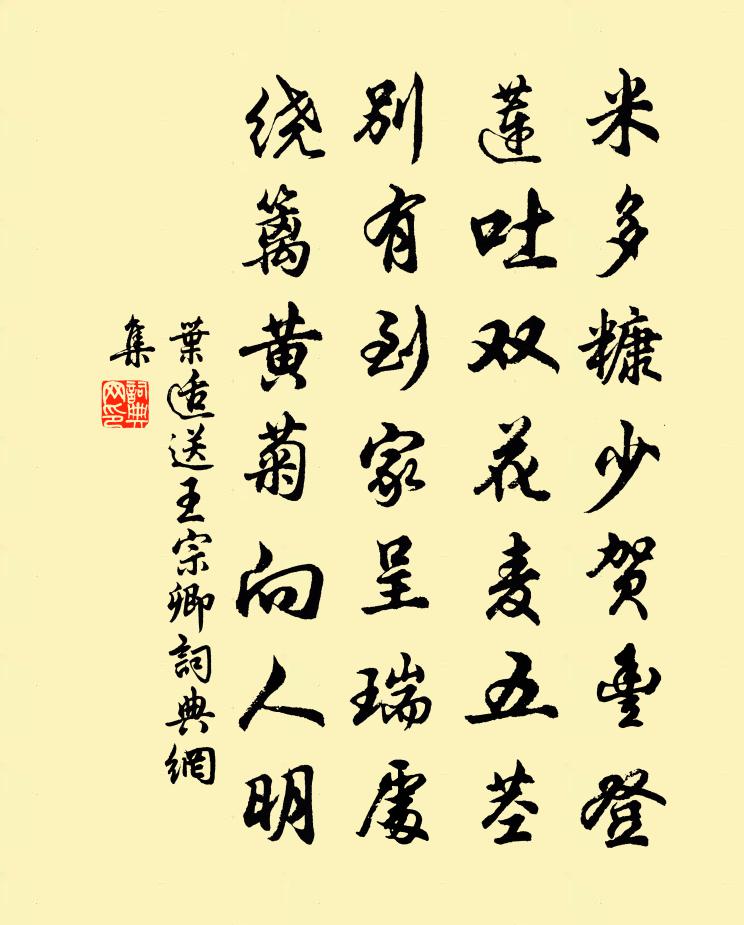 米多糠少贺豊登
蓮吐双花麦五茎
别有到家呈瑞處
绕篱黄菊向人明
葉适送王宗卿詞典網
集
詞典網印